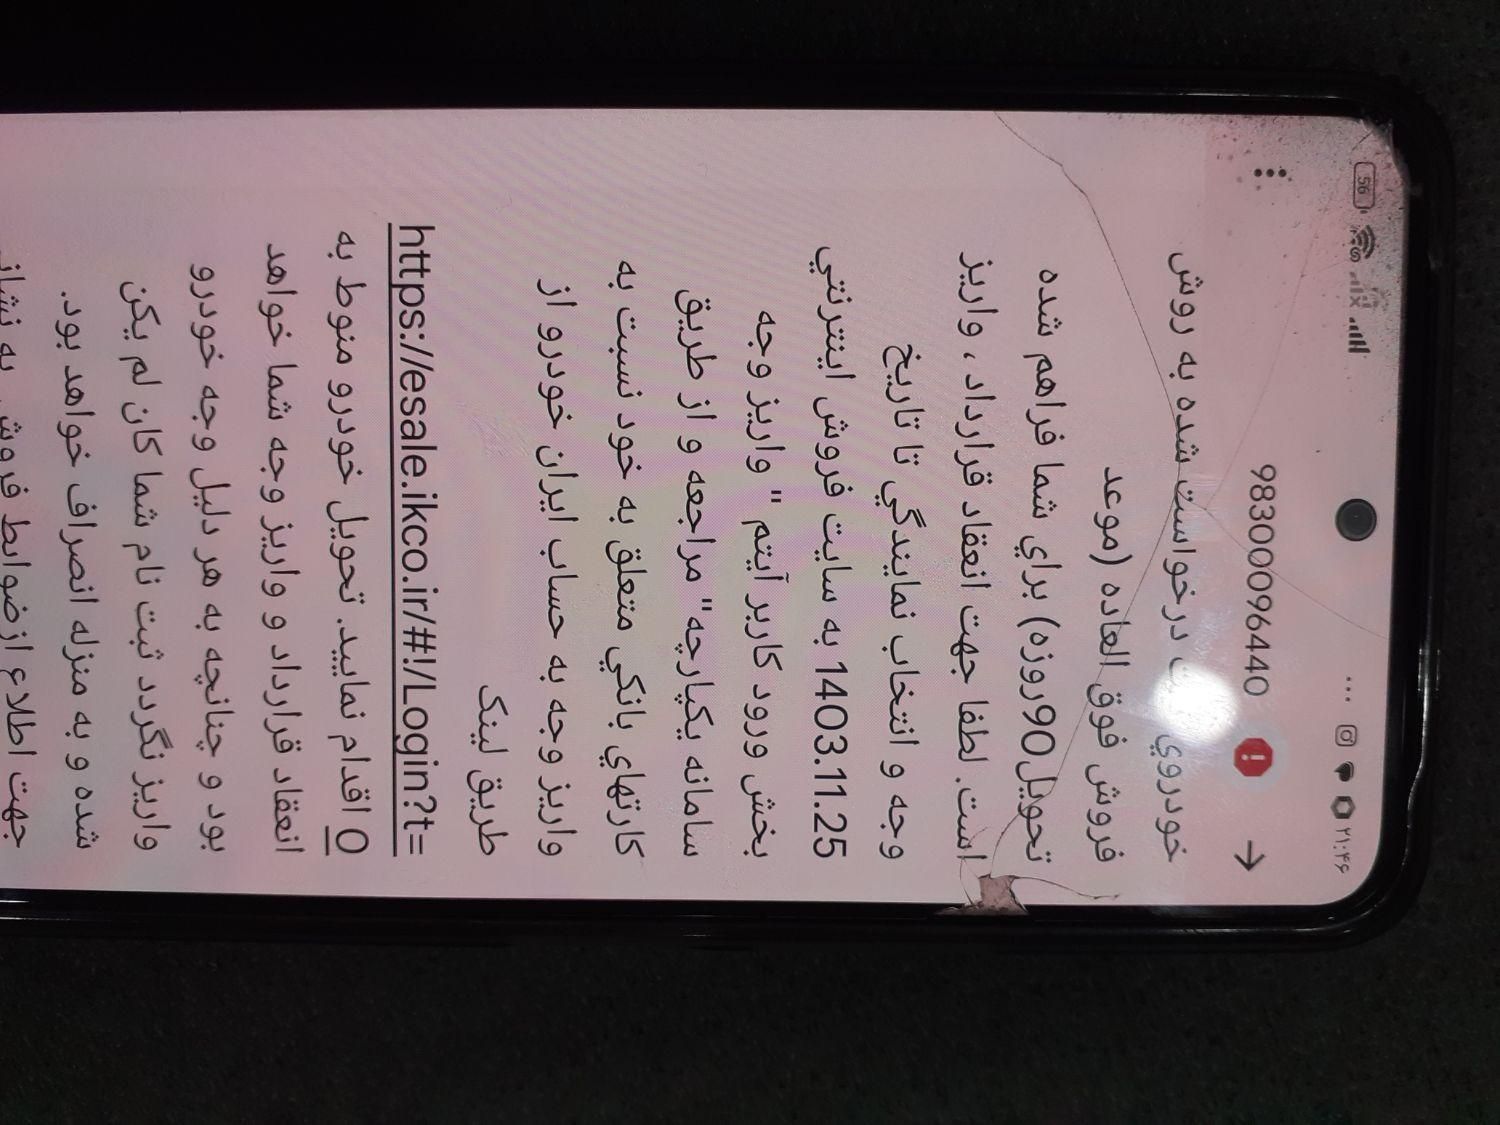 ۲۱:۴۶
56
98300096440
خودروي درخواست شده به روش
فروش فوق العاده (موعد
تحويل90روزه) براي شما فراهم شده
است. لطفا جهت انعقاد قرارداد، واريز
وجه و انتخاب نمايندگي تا تاريخ
1403.11.25 به سايت فروش اينترنتي
بخش ورود کاربر آيتم " واريز وجه
سامانه يکپارچه" مراجعه و از طريق
کارتهاي بانکي متعلق به خود نسبت به
واريز وجه به حساب ايران خودرو از
طريق لينک
https://esale.ikco.ir/#!/Login?t=
0 اقدام نماييد. تحويل خودرو منوط به
انعقاد قرارداد و واريز وجه شما خواهد
بود و چنانچه به هر دليل وجه خودرو
واريز نگردد ثبت نام شما کان لم يکن
شده و به منزله انصراف خواهد بود.
جهت اطلاع از ضوابط فروش به